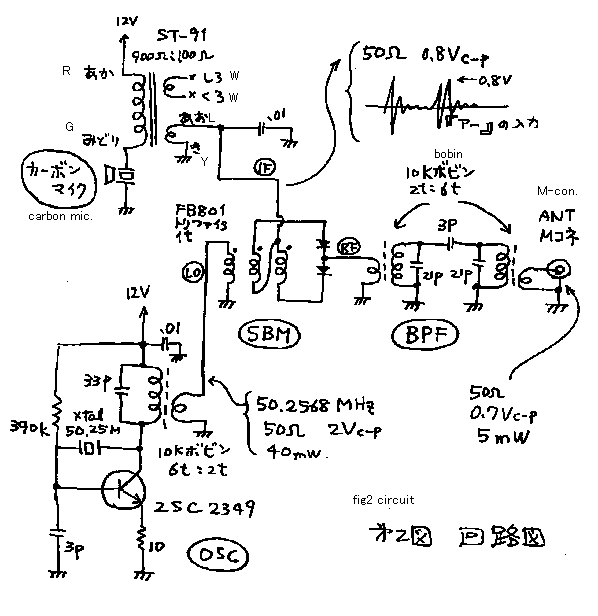 12V
ST-91
900Ω:100Ω
R あか
しろ W
くろ W
あおL
G みどり
き Y
.01
カーボンマイク
carbon mic.
50Ω 0.8Vc-p
0.8V
『アー』の入力
IF
bobin
10Kボビン
2t:6t
M-con.
ANT
Mコネ
FB801
トリファイラ
1t
LO
RF
3P
21P
21P
SBM
BPF
12V
.01
33P
390k
xtal
50.25M
10Kボビン
6t:2t
50.2568 MHz
50Ω 2Vc-p
40mW.
50Ω
0.7Vc-p
5mW
2SC2349
3p
10
OSC
fig2 circuit
第2図 回路図